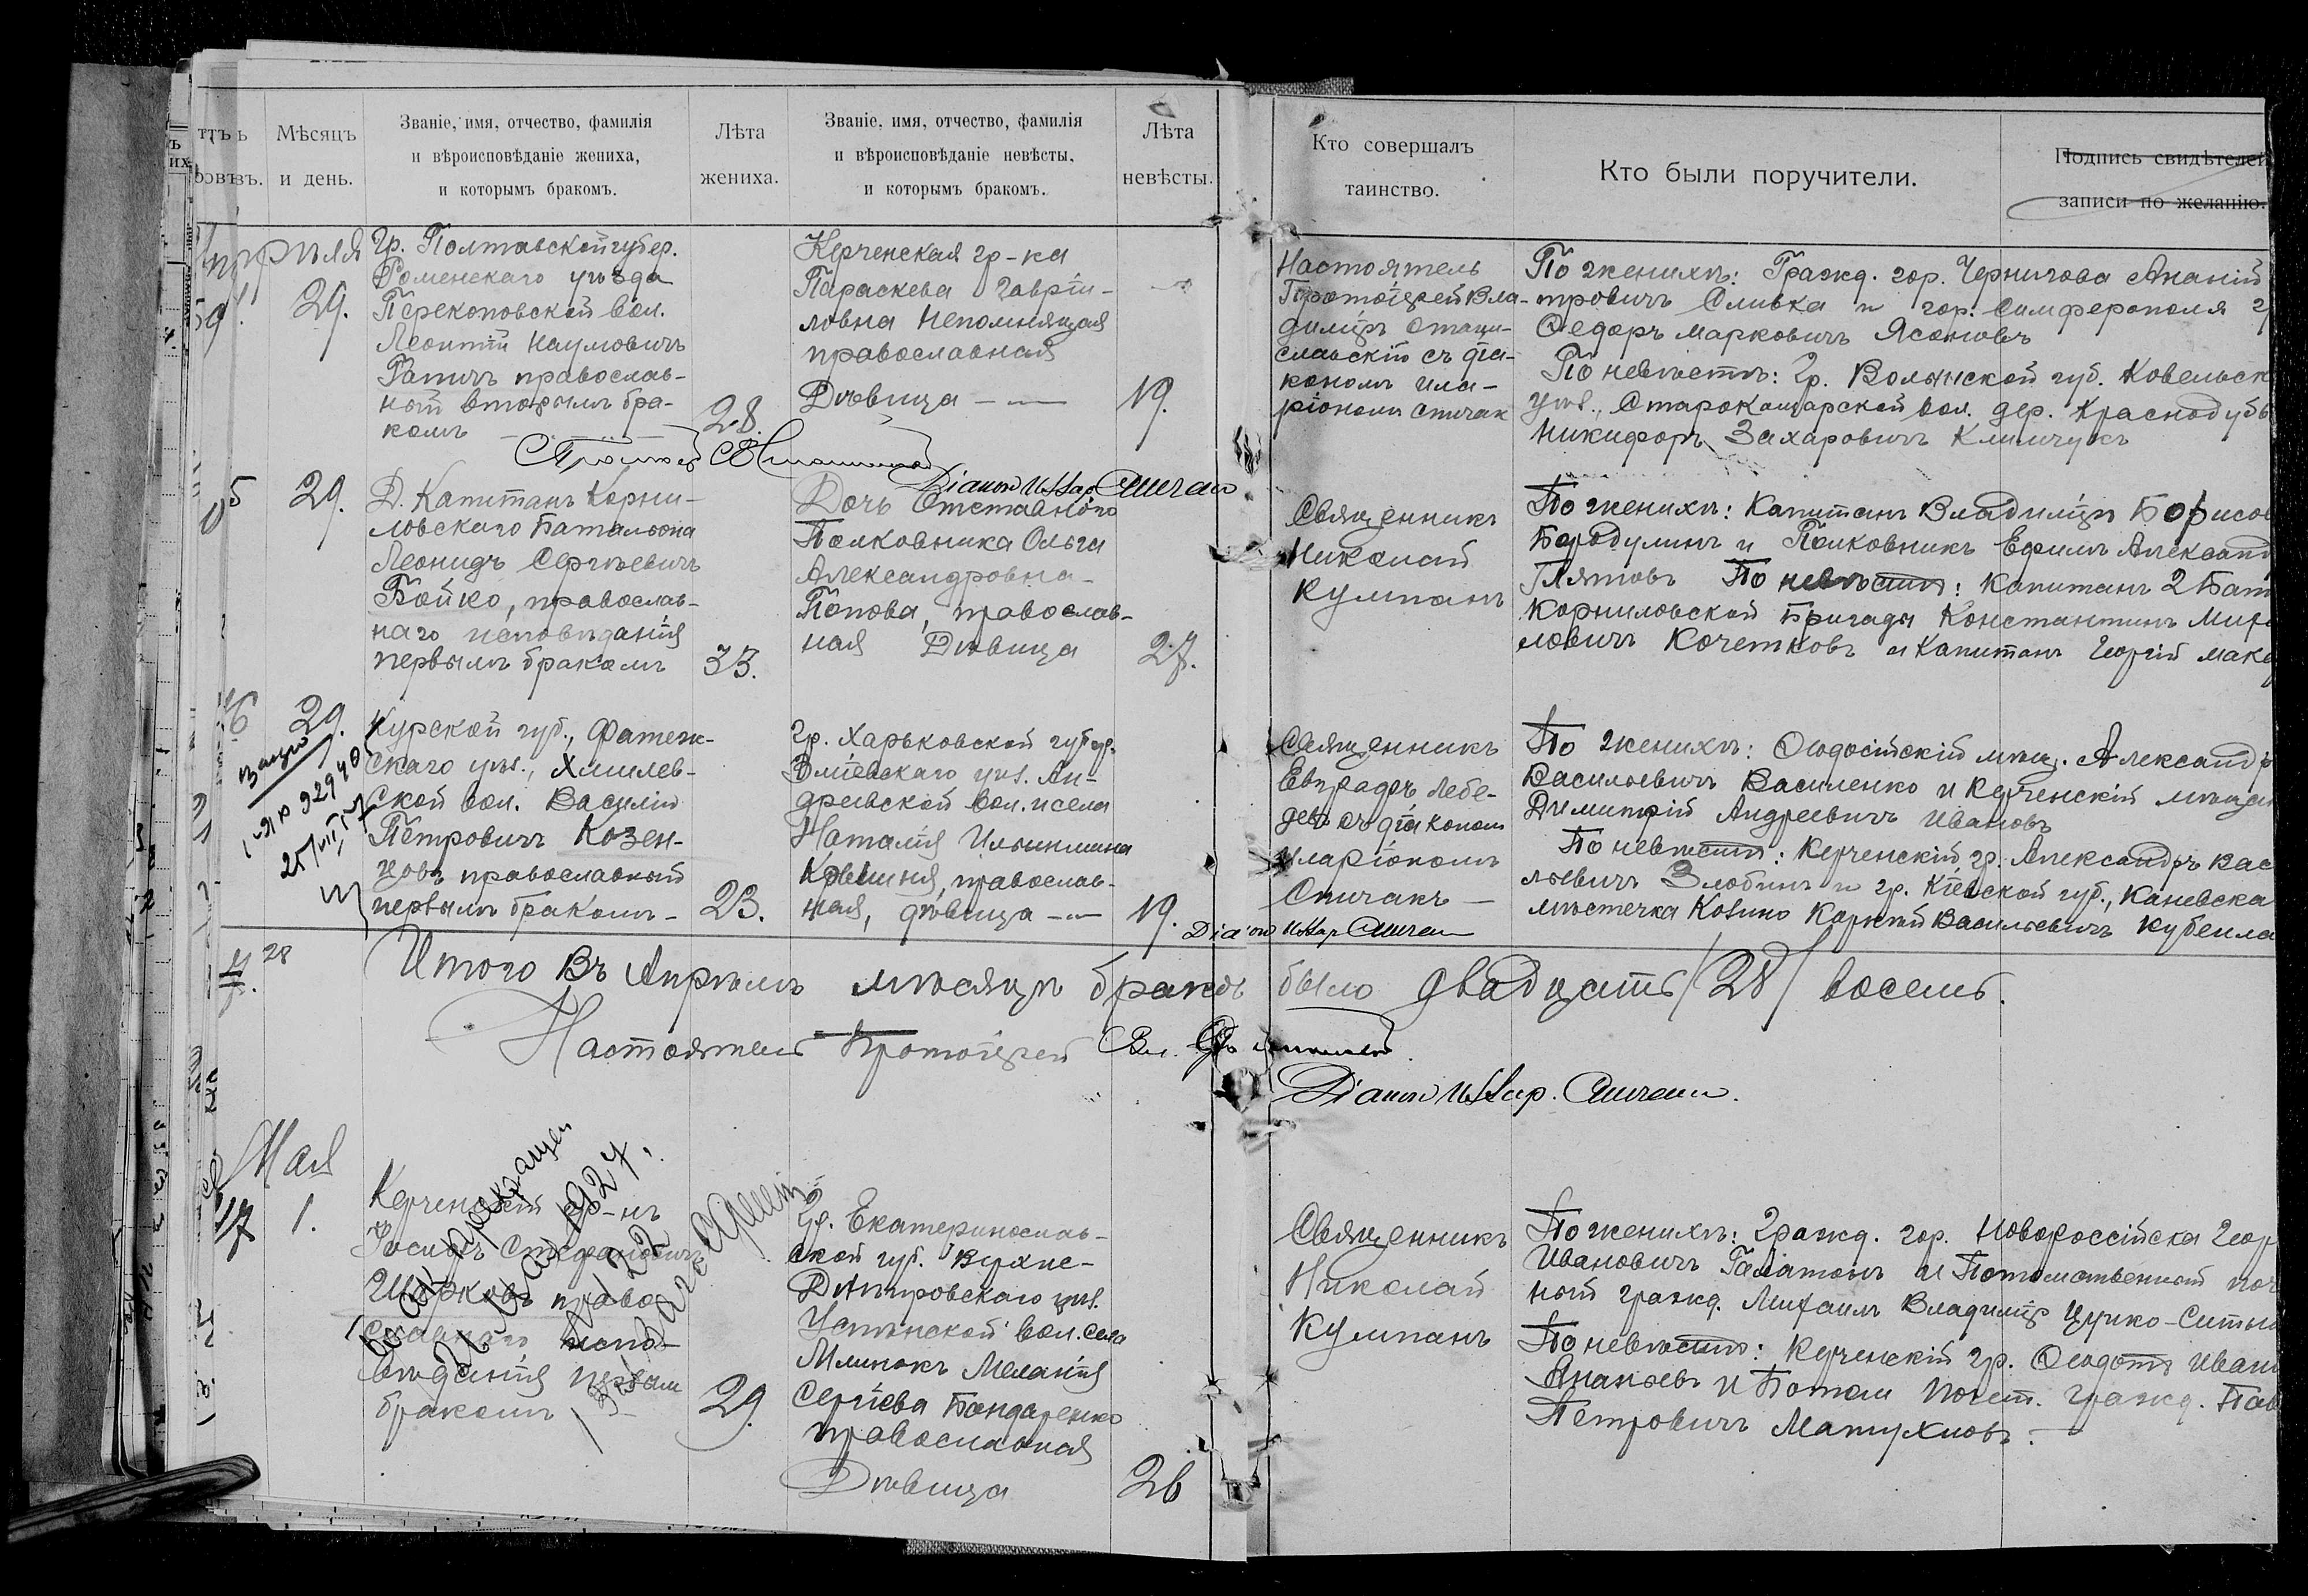 Мѣсяцъ
и день.
Званіе, имя, отчество, фамилія
и вѣроисповѣданіе жениха,
и которымъ бракомъ.
Лѣта
жениха.
Званіе, имя, отчество, фамилія
и вѣроисповѣданіе невѣсты,
и которымъ бракомъ.
Лѣта
невѣсты.
Кто совершалъ
таинство.
Кто были поручители.
Подпись свидѣтелей
записи по желанію.
Апрѣля
29.
Гр. Полтавской губер.
Роменскаго уѣзда
Перекоповской вол.
Леонтій Наумовичъ
Рапичъ православ-
ный вторымъ бра-
комъ
28.
Керченская гр-ка
Параскева Гаврі-
ловна Непомнящая
православная
Дѣвица
19.
Настоятель
Протоіерей Вла-
диміръ Стани-
славскій съ діа-
кономъ Ила-
ріономъ Спичак
По женихѣ: Гражд. гор. Чернигова Ананій
тровичъ Сливка и гор. Симферополя
Федоръ Марковичъ Ясоновъ
По невѣстѣ: Гр. Волынской губ. Ковельск
уѣз., Старокошарской вол. дер. Краснодубь
Никифоръ Захаровичъ Климчукъ
Діаконъ Илар Спичак
29.
Д. Капитанъ Корни-
ловскаго Баталіона
Леонидъ Сергѣевичъ
Бойко, православ-
наго исповѣданія
первымъ бракомъ
33.
Дочь Отставного
Полковника Ольга
Александровна
Попова, православ-
ная Дѣвица
27.
Священникъ
Николай
Кумпанъ
По женихѣ: Капитанъ Владиміръ Борисов
Бородулинъ и Полковникъ Ефимъ Александ
Глятовъ По невѣстѣ: Капитанъ 2 Бат
Корниловской Бригады Константинъ Миха
ловичъ Кочетковъ и Капитанъ Георгій Мака
6
29.
Курской губ., Фатеж-
скаго уѣз., Хмилев-
ской вол. Василій
Петровичъ Козен-
цовъ православный
первымъ бракомъ
23.
Гр. Харьковской губер.
Зміевскаго уѣз. Ан-
дреевской вол. и села
Наталія Ильинишна
православ-
ная, дѣвица
19.
Священникъ
Евграфъ Лебе-
девъ съ діаконом
Иларіономъ
Спичакъ
По женихѣ: Феодосійскій мѣщ. Александр
Васильевичъ Василенко и Керченскій мѣщан
Димитрій Андреевичъ Ивановъ
По невѣстѣ: Керченскій гр. Александръ Вас
льевичъ Злобинъ и гр. Кіевской губ., Каневска
мѣстечка Козино Корнѣй Васильевичъ Кубенла
Діаконъ Илар Спичак
28
Итого въ Апрѣлѣ мѣсяцѣ браковъ было двадцать /28/ восемь.
Настоятель Протоіерей Вл.
Діаконъ Илар. Спичак.
Мая
17
1.
Керченскій гр-нъ
Іосифъ Стефановичъ
Широковъ право
славнаго испо-
вѣданія первым
бракомъ
29.
Гр. Екатеринослав-
ской губ. Верхне-
Днѣпровскаго уѣз.
вол. села
Млинокъ Меланія
Сергіева Бондаренко
православная
Дѣвица
26
Священникъ
Николай
Кумпанъ
По женихѣ: Гражд. гор. Новороссійска Геор
Ивановичъ Галатонъ и Потомственный поч
ный гражд. Михаилъ Владиміръ Цурко-Ситни
По невѣстѣ: Керченскій гр. Феодотъ Иван
Ананьевъ и Потом. почет. гражд. Пав
Петровичъ Матухновъ.
брак прекращен
21 мая 1927.
№ 22